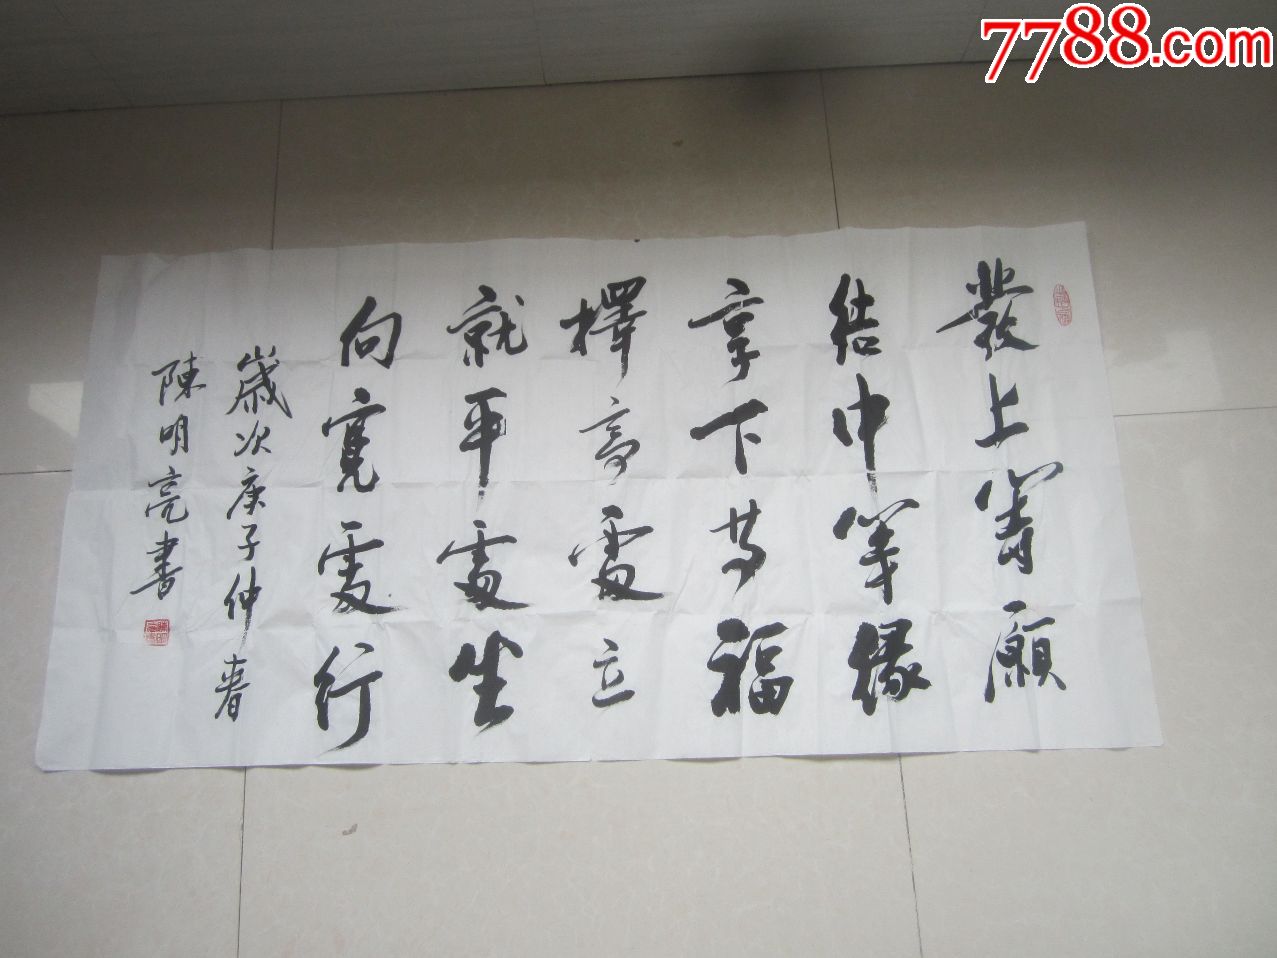 7788.com
發上等願
結中等緣
享下等福
擇高處立
就平處坐
向寬處行
歲次庚子仲春
陳明亮書